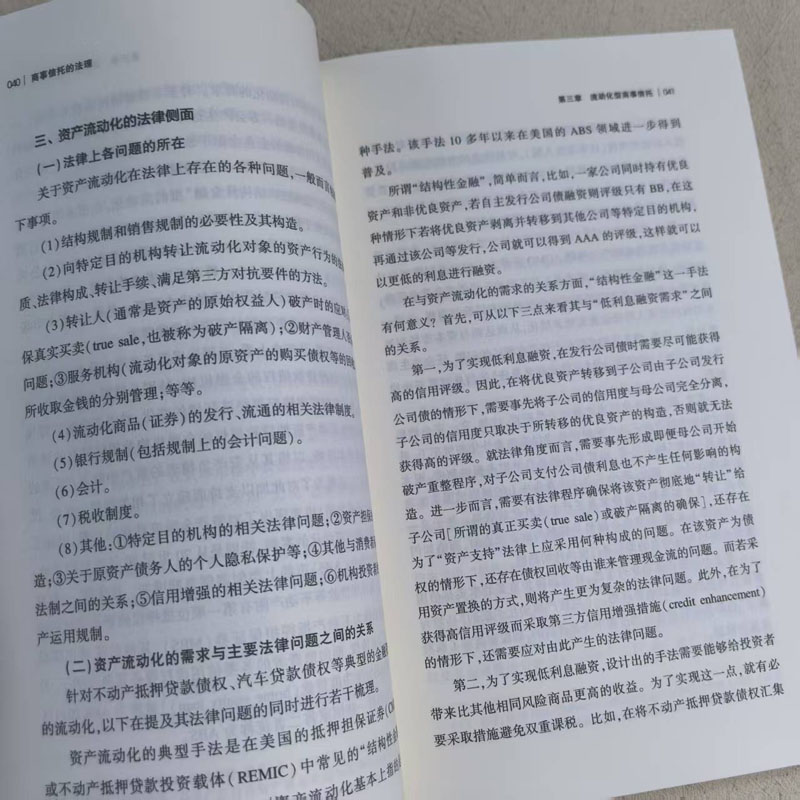 040 | 商事信托的法理
三、资产流动化的法律侧面
(一)法律上各问题的所在
关于资产流动化在法律上存在的各种问题,一般而言
下事项。
(1)结构规制和销售规制的必要性及其构造。
(2)向特定目的机构转让流动化对象的资产行为的
质、法律构成、转让手续、满足第三方对抗要件的方法。
(3)转让人(通常是资产的原始权益人)破产时的应对
保真实买卖(true sale,也被称为破产隔离);②财产管理人
问题;③服务机构(流动化对象的原资产的购买债权等的回
所收取金钱的分别管理;等等。
(4)流动化商品(证券)的发行、流通的相关法律制度。
(5)银行规制(包括规制上的会计问题)。
(6)会计。
(7)税收制度。
(8)其他:①特定目的机构的相关法律问题;②资产担
造;③关于原资产债务人的个人隐私保护等;④其他与消费
法制之间的关系;⑤信用增强的相关法律问题;⑥机构投资
产运用规制。
(二)资产流动化的需求与主要法律问题之间的关系
针对不动产抵押贷款债权、汽车贷款债权等典型的金融
的流动化,以下在提及其法律问题的同时进行若干梳理。
资产流动化的典型手法是在美国的抵押担保证券(C
或不动产抵押贷款投资载体(REMIC)中常见的“结构性
资产流动化基本上指
第三章 流动化型商事信托 | 041
种手法。该手法 10 多年以来在美国的 ABS 领域进一步得到
普及。
所谓“结构性金融”,简单而言,比如,一家公司同时持有优良
资产和非优良资产,若自主发行公司债融资则评级只有 BB,在这
种情形下若将优良资产剥离并转移到其他公司等特定目的机构,
再通过该公司等发行,公司就可以得到 AAA 的评级,这样就可以
以更低的利息进行融资。
在与资产流动化的需求的关系方面,“结构性金融”这一手法
有何意义?首先,可从以下三点来看其与“低利息融资需求”之间
的关系。
第一,为了实现低利息融资,在发行公司债时需要尽可能获得
高的信用评级。因此,在将优良资产转移到子公司由子公司发行
公司债的情形下,需要事先将子公司的信用度与母公司完全分离,
子公司的信用度只取决于所转移的优良资产的构造,否则就无法
获得高的评级。就法律角度而言,需要事先形成即便母公司开始
破产重整程序,对子公司支付公司债利息也不产生任何影响的构
造。进一步而言,需要有法律程序确保将该资产彻底地“转让”给
子公司[所谓的真正买卖(true sale)或破产隔离的确保],还存在
为了“资产支持”法律上应采用何种构成的问题。在该资产为债
权的情形下,还存在债权回收等由谁来管理现金流的问题。而若采
用资产置换的方式,则将产生更为复杂的法律问题。此外,在为了
获得高信用评级而采取第三方信用增强措施(credit enhancement)
的情形下,还需要应对由此产生的法律问题。
第二,为了实现低利息融资,设计出的手法需要能够给投资者
带来比其他相同风险商品更高的收益。为了实现这一点,就有必
要采取措施避免双重课税。比如,在将不动产抵押贷款债权汇集